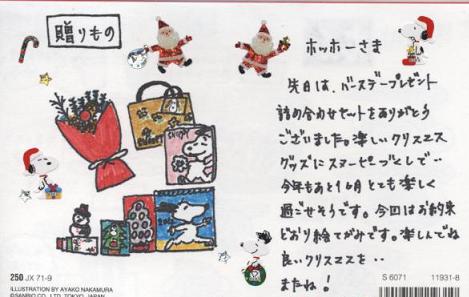 贈りもの
ホッホーさま
先日は、バースデープレゼント
詰め合わせセットをありがとう
ございました。楽しいクリスマス
グッズにスヌーピーづくしで‥
今年もあと1ヶ月とても楽しく
過ごせそうです。今回はお約束
どおり絵てがみです。楽しんでね
良いクリスマスを‥
またね!
SNOOPY
250 JX 71-9
ILLUSTRATION BY AYAKO NAKAMURA
©SANRIO CO., LTD. TOKYO, JAPAN
S 6071
11931-8